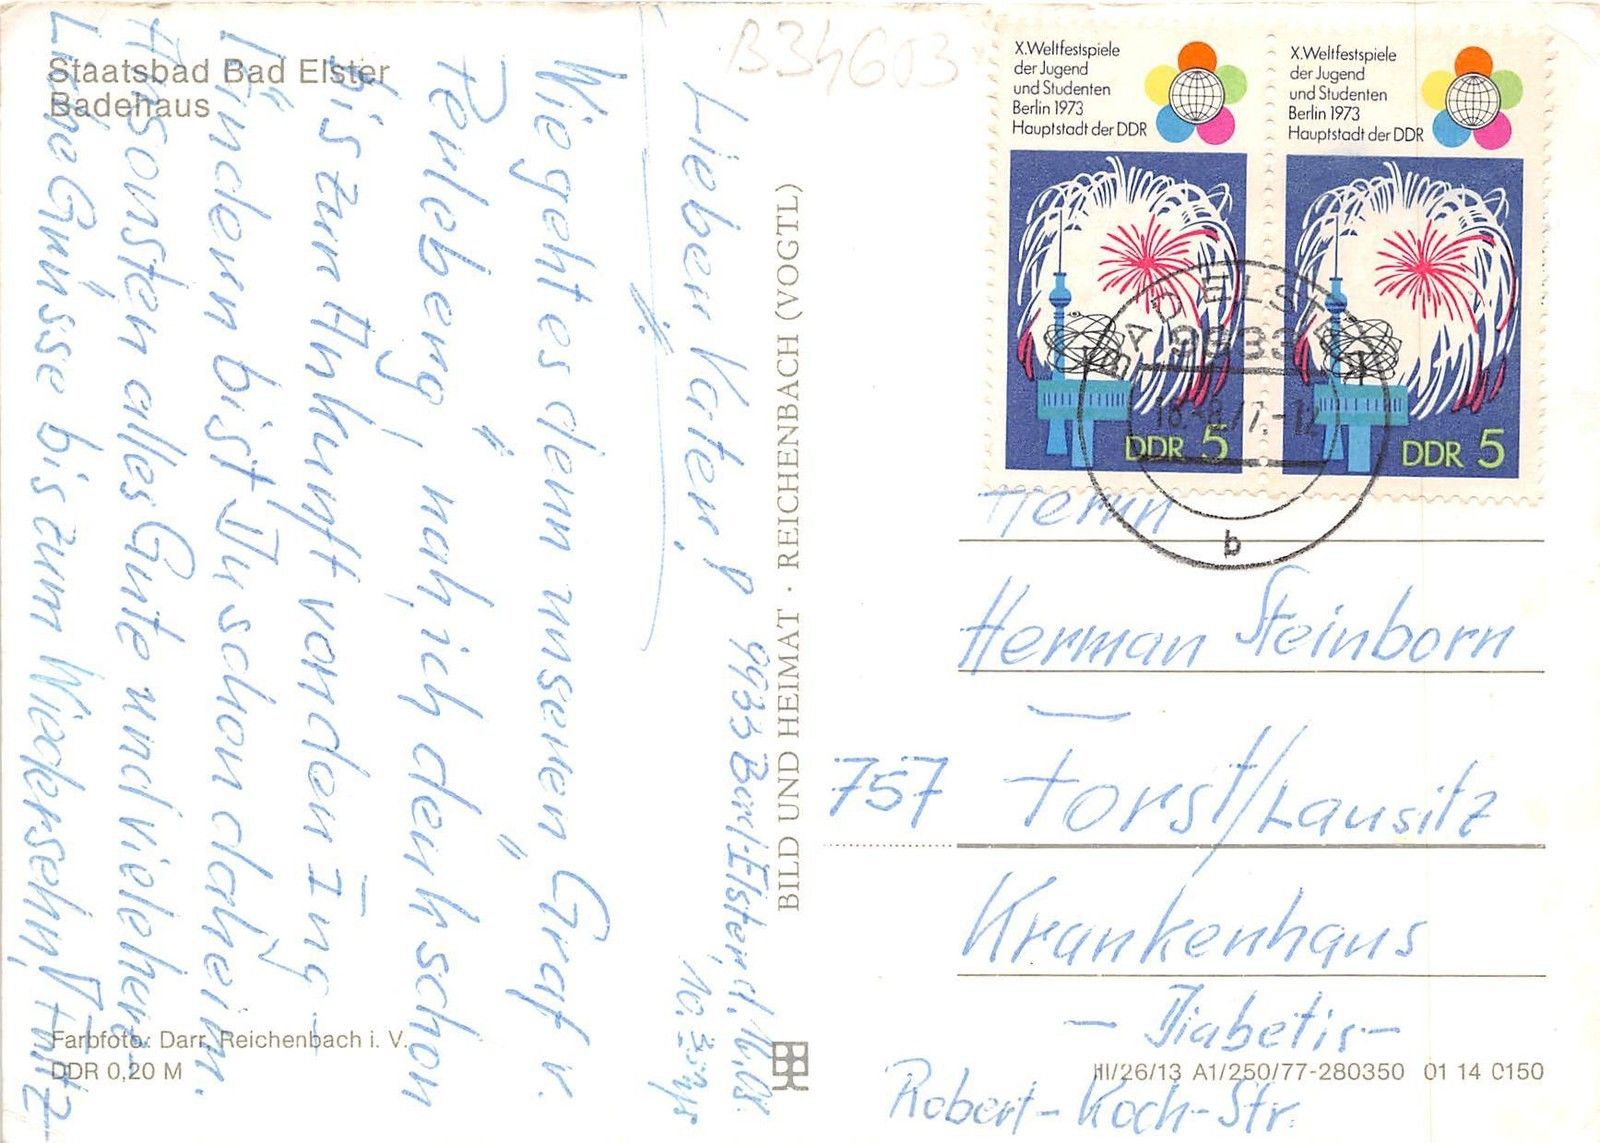 Staatsbad Bad Elster
Badehaus
B34603
9933 Bad-Elster, d.
Lieber Vater!
Wie geht es denn unseren „Graf v.
Perleberg", nah, ich denk schon
bis zur Ankunft von den Ing-
Kindern bist Du schon daheim.
Ansonsten alles Gute und viele herz-
Liche Grüsse bis zum Wiedersehn, Fritz
Farbfoto: Darr, Reichenbach i. V.
DDR 0,20 M
BILD UND HEIMAT · REICHENBACH (VOGTL)
X.Weltfestspiele
der Jugend
und Studenten
Berlin 1973
Hauptstadt der DDR
DDR 5
X.Weltfestspiele
der Jugend
und Studenten
Berlin 1973
Hauptstadt der DDR
DDR 5
BAD ELSTER
9933
b
Herrn
Herman Steinborn
757 Forst/Lausitz
Krankenhaus
- Diabetis -
Robert-Koch-Str.
III/26/13 A1/250/77-280350 01 14 0150